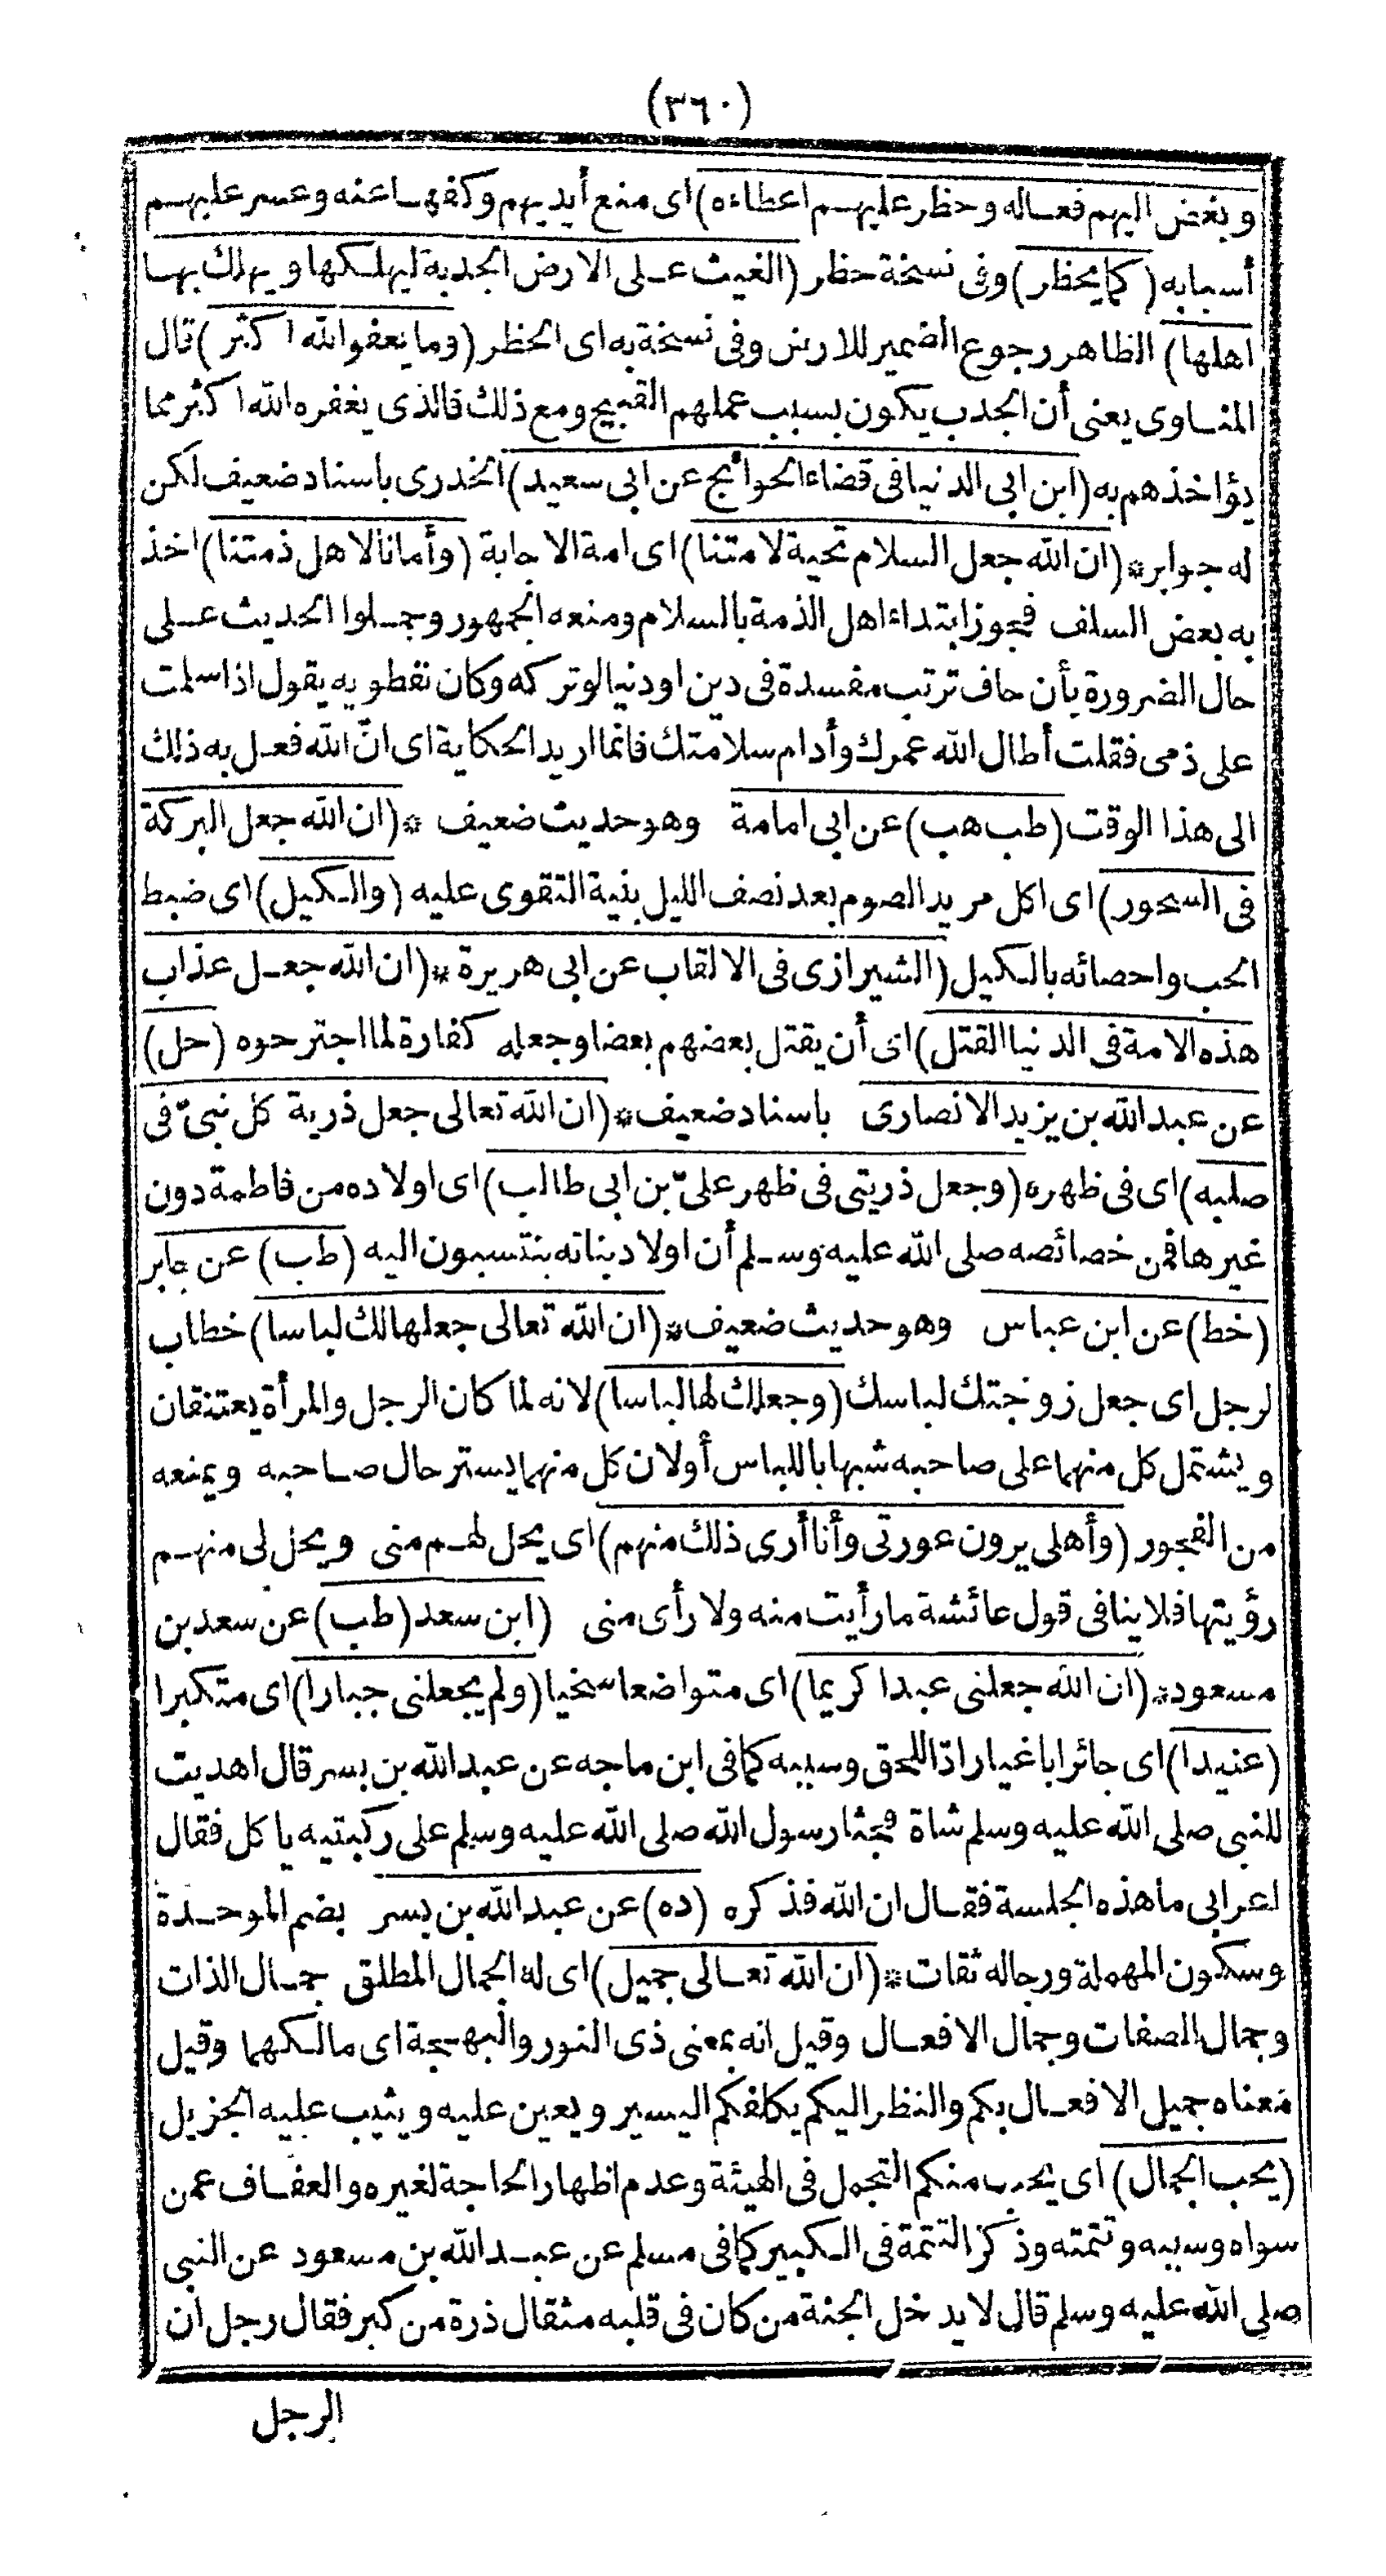 (٣٦٠)
وبغض اليهم فعاله وحظر عليهم اعطاءه) اى منع أيديهم وكفها عنه وعسر عليهم
أسبابه (كما يحظر) وفى نسخة حظر (الغيث على الارض الجدبة ليهلكها ويهلك بها
اهلها) الظاهر رجوع الضمير للارض وفى نسخة به اى الحظر (وما يعفو الله اكثر) قال
المناوى يعنى أن الجدب يكون بسبب عملهم القبيح ومع ذلك فالذى يغفره الله اكثر مما
يؤاخذهم به (ابن ابى الدنيا فى قضاء الحوائج عن ابى سعيد) الخدرى باسناد ضعيف لكن
له جوابر * (ان الله جعل السلام تحية لامتنا) اى امة الاجابة (وأمانا لاهل ذمتنا) اخذ
به بعض السلف فجوز ابتداء اهل الذمة بالسلام ومنعه الجمهور وحملوا الحديث على
حال الضرورة بأن خاف ترتب مفسدة فى دين او دنيا لو تركه وكان نفطويه يقول اذا سلمت
على ذمى فقلت أطال الله عمرك وأدام سلامتك فانما اريد الحكاية اى انّ الله فعل به ذلك
الى هذا الوقت (طب هب) عن ابى امامة وهو حديث ضعيف * (ان الله جعل البركة
فى السحور) اى اكل مريد الصوم بعد نصف الليل بنية التقوى عليه (والكيل) اى ضبط
الحب واحصائه بالكيل (الشيرازى فى الالقاب عن ابى هريرة * (ان الله جعل عذاب
هذه الامة فى الدنيا القتل) اى أن يقتل بعضهم بعضا وجعله كفارة لما اجترحوه (حل)
عن عبد الله بن يزيد الانصارى باسناد ضعيف * (ان الله تعالى جعل ذرية كل نبىّ فى
صلبه) اى فى ظهره (وجعل ذريتى فى ظهر علىّ بن ابى طالب) اى اولاده من فاطمة دون
غيرها فمن خصائصه صلى الله عليه وسلم أن اولاد بناته ينتسبون اليه (طب) عن جابر
(خط) عن ابن عباس وهو حديث ضعيف * (ان الله تعالى جعلها لك لباسا) خطاب
لرجل اى جعل زوجتك لباسك (وجعلك لها لباسا) لانه لما كان الرجل والمرأة يعتنقان
ويشتمل كل منهما على صاحبه شبها باللباس أو لان كل منهما يستر حال صاحبه ويمنعه
من الفجور (وأهلى يرون عورتى وأنا أرى ذلك منهم) اى يحل لهم منى ويحل لى منهم
رؤيتها فلا ينافى قول عائشة ما رأيت منه ولا رأى منى (ابن سعد (طب) عن سعد بن
مسعود * (ان الله جعلنى عبدا كريما) اى متواضعا سخيا (ولم يجعلنى جبارا) اى متكبرا
(عنيدا) اى جائرا باغيا رادّا للحق وسببه كما فى ابن ماجه عن عبد الله بن بسر قال اهديت
للنبى صلى الله عليه وسلم شاة فجثا رسول الله صلى الله عليه وسلم على ركبتيه ياكل فقال
اعرابى ما هذه الجلسة فقال ان الله فذكره (ده) عن عبد الله بن بسر بضم الموحدة
وسكون المهملة ورجاله ثقات * (ان الله تعالى جميل) اى له الجمال المطلق جمال الذات
وجمال الصفات وجمال الافعال وقيل انه بمعنى ذى النور والبهجة اى مالكهما وقيل
معناه جميل الافعال بكم والنظر اليكم يكلفكم اليسير ويعين عليه ويثيب عليه الجزيل
(يحب الجمال) اى يحب منكم التجمل فى الهيئة وعدم اظهار الحاجة لغيره والعفاف عمن
سواه وسببه وتتمته وذكر التتمة فى الكبير كما فى مسلم عن عبد الله بن مسعود عن النبى
صلى الله عليه وسلم قال لا يدخل الجنة من كان فى قلبه مثقال ذرة من كبر فقال رجل ان
الرجل